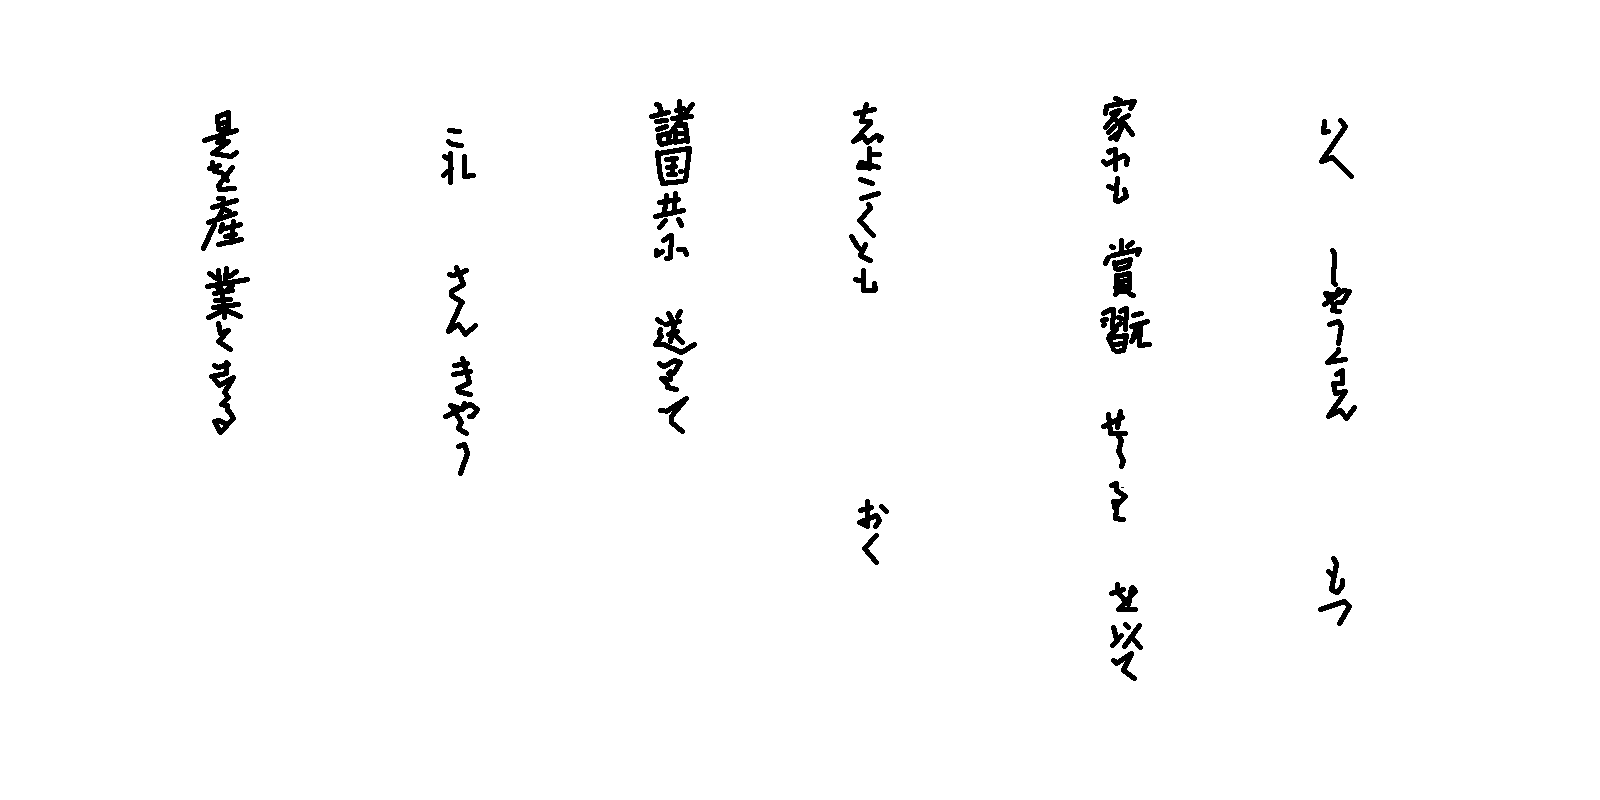 いへ しやうくわん もつ
家にも賞翫せらるを以て
しよこくとも おく
諸国共に送りて
これ さんきやう
是を産業とする